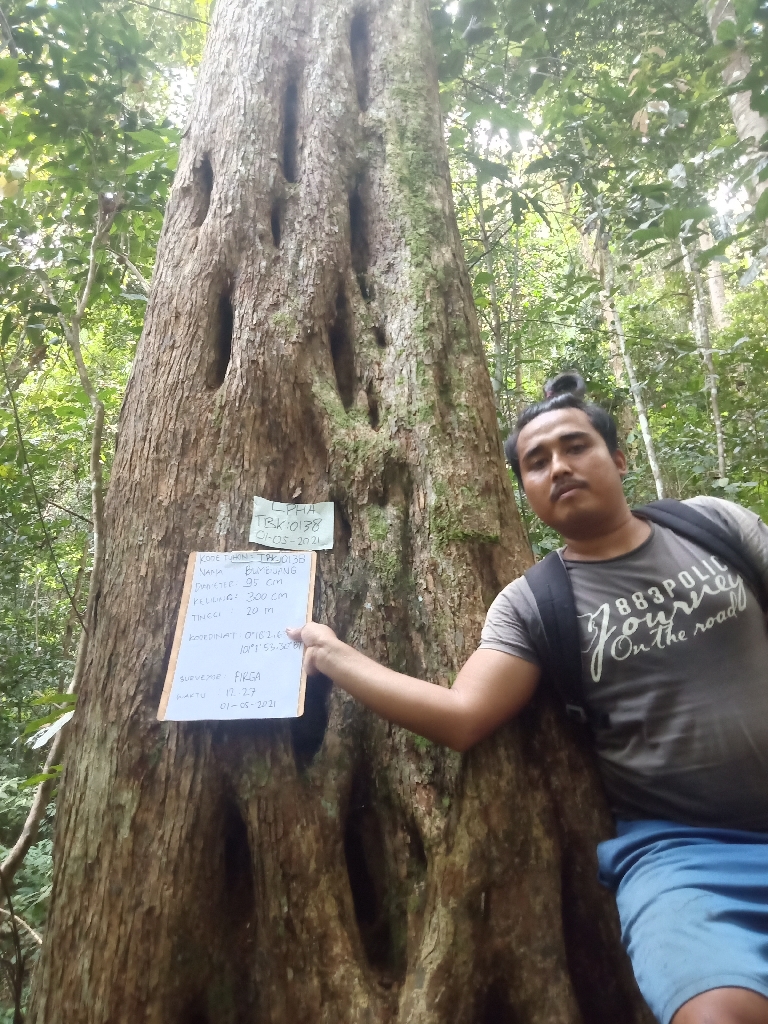 LPHA
TBK10138
01-05-2021
KODE POHON : TBK10138
NAMA :
DIAMETER : 95 CM
KELILING : 300 CM
TINGGI : 20 M
KOORDINAT :
SURVEYOR : FIRGA
WAKTU : 12.27
01-05-2021
883POLICE
Journey
On the road